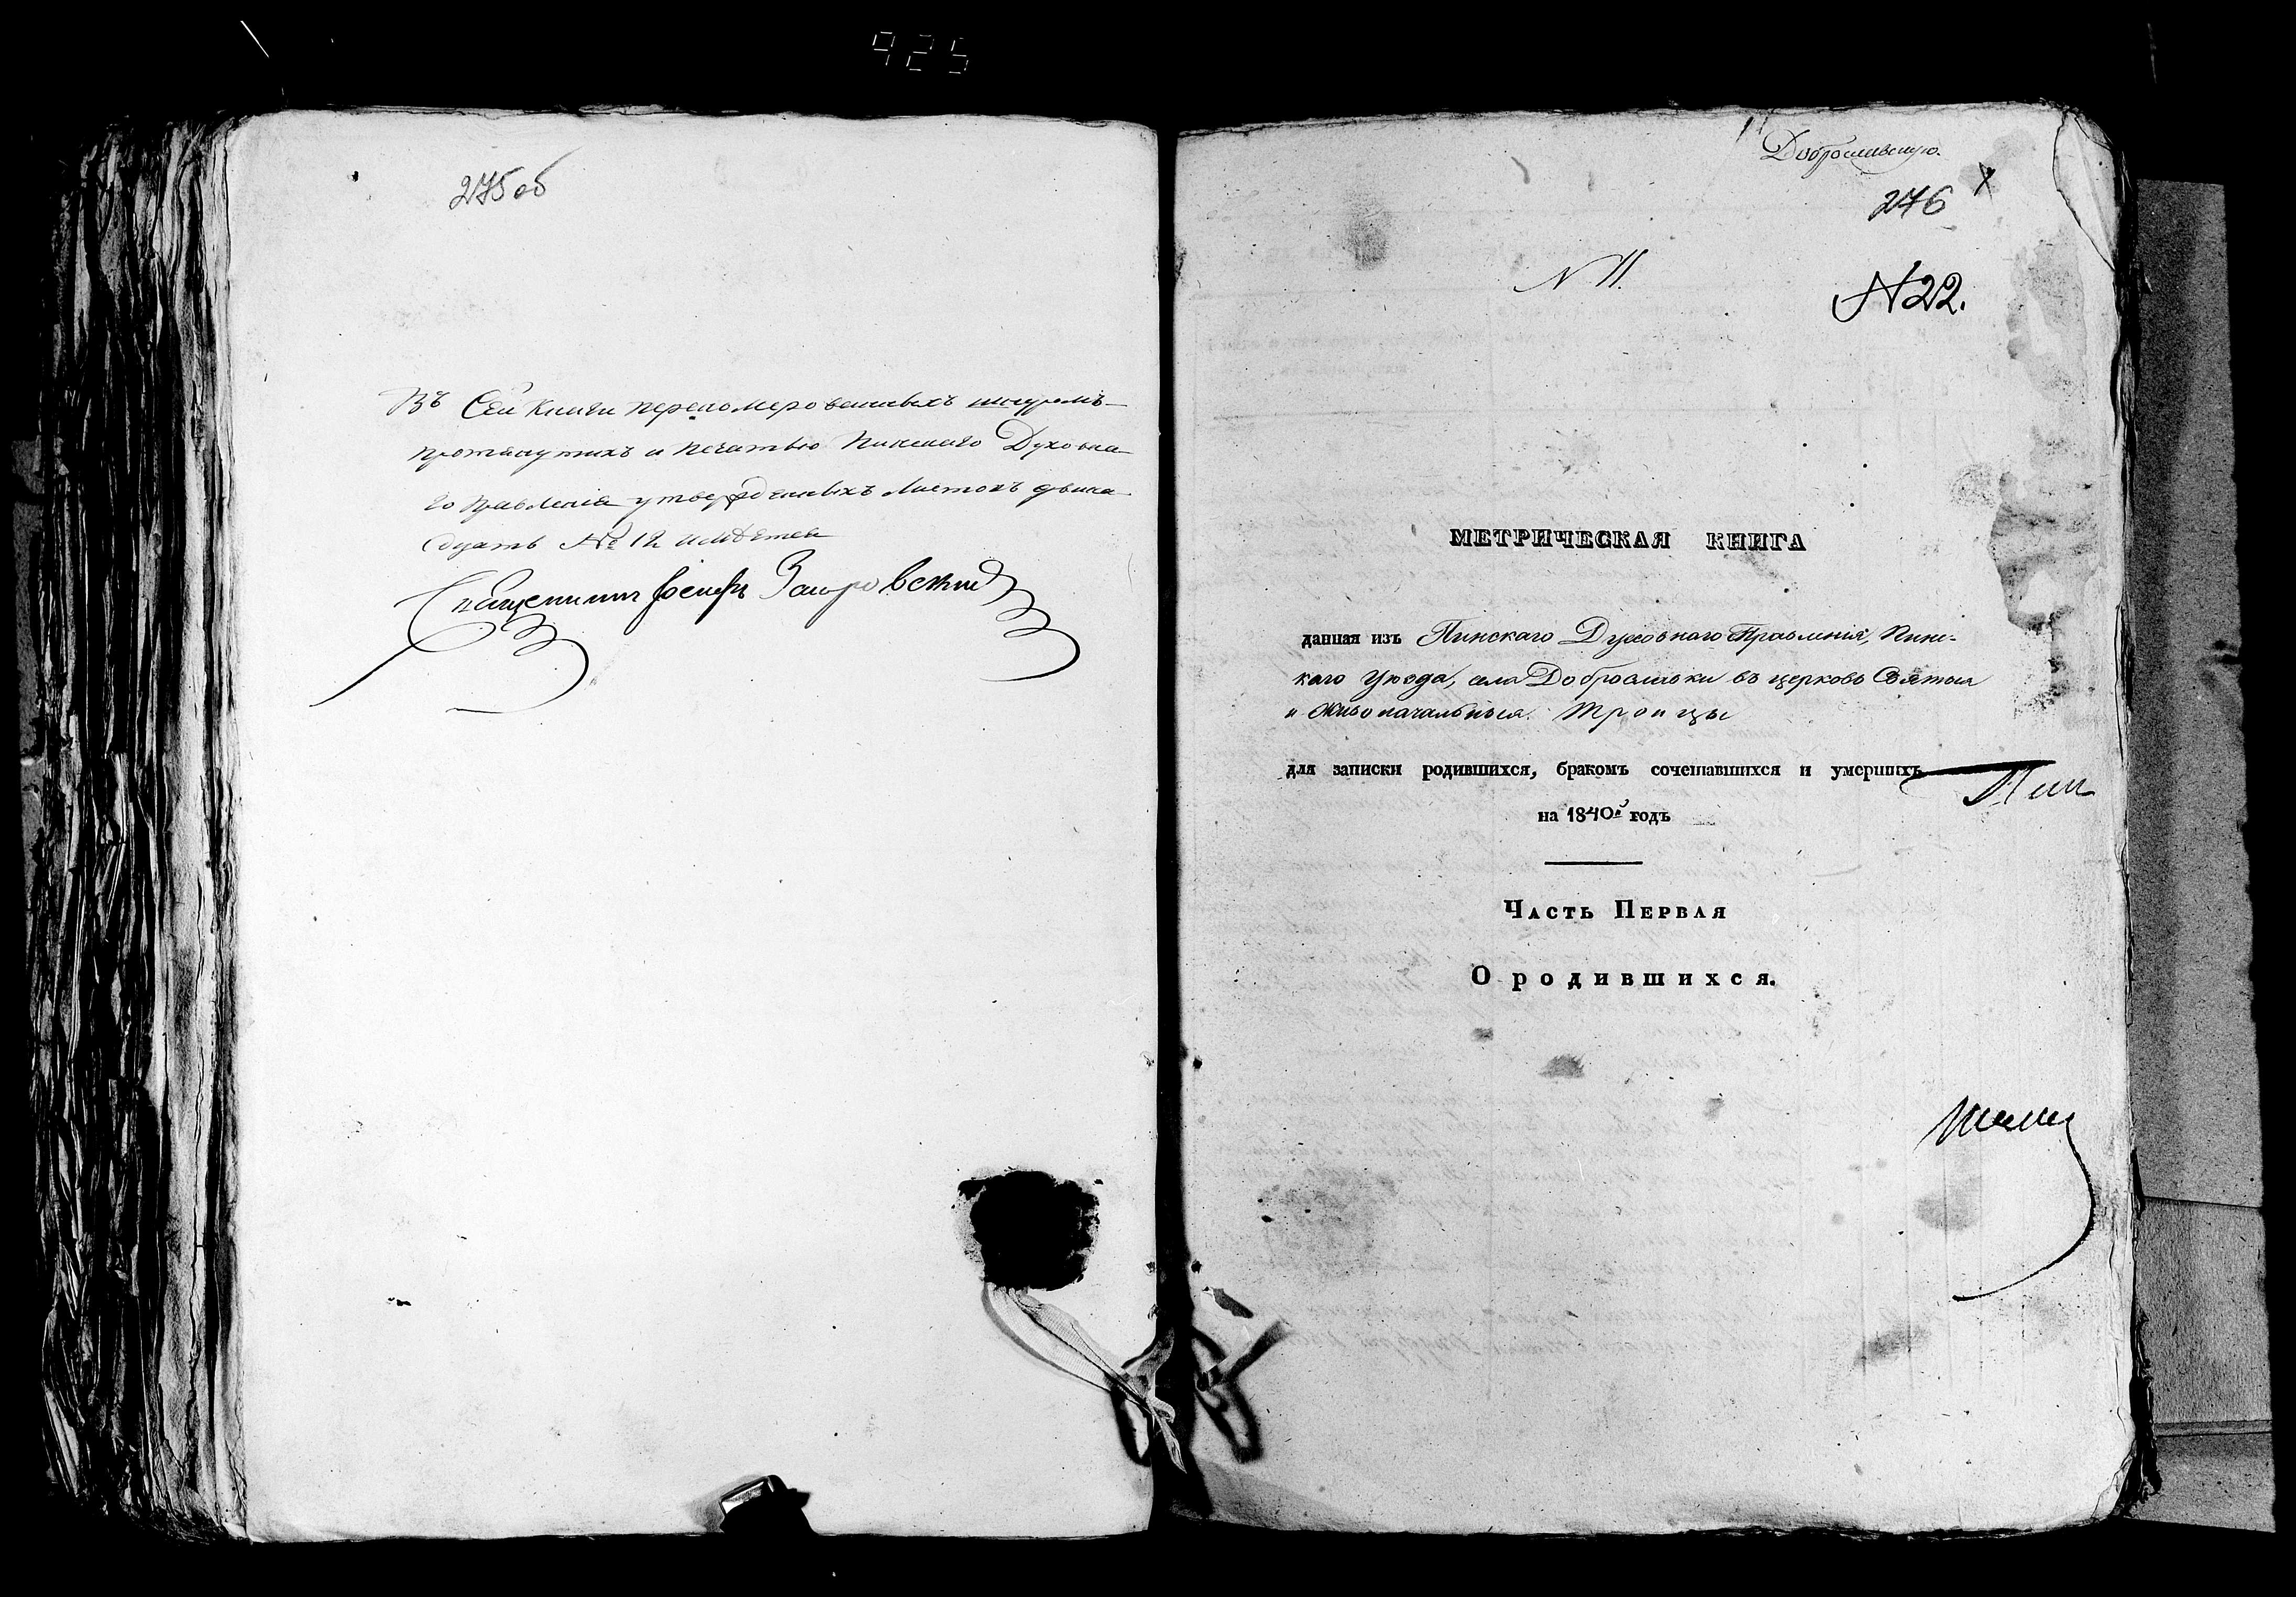 925
275об
Въ Сей Книги переномерованныхъ шнуромъ
протянутыхъ и печатью Пинскаго Духовна
го Правленія утвержденныхъ листовъ двена
дцать № 12 имѣетца
Священникъ Іосифъ
Доброславскую.
276
N 11.
N 22.
МЕТРИЧЕСКАЯ КНИГА
данная изъ Пинскаго Духовнаго Правленія, Пинс-
каго Уезда, села Доброславки въ церковь Святыя
и Живоначальныя Троицы
для записки родившихся, бракомъ сочетавшихся и умершихъ
Пин
на 1840й годъ
Часть Первая
О родившихся.